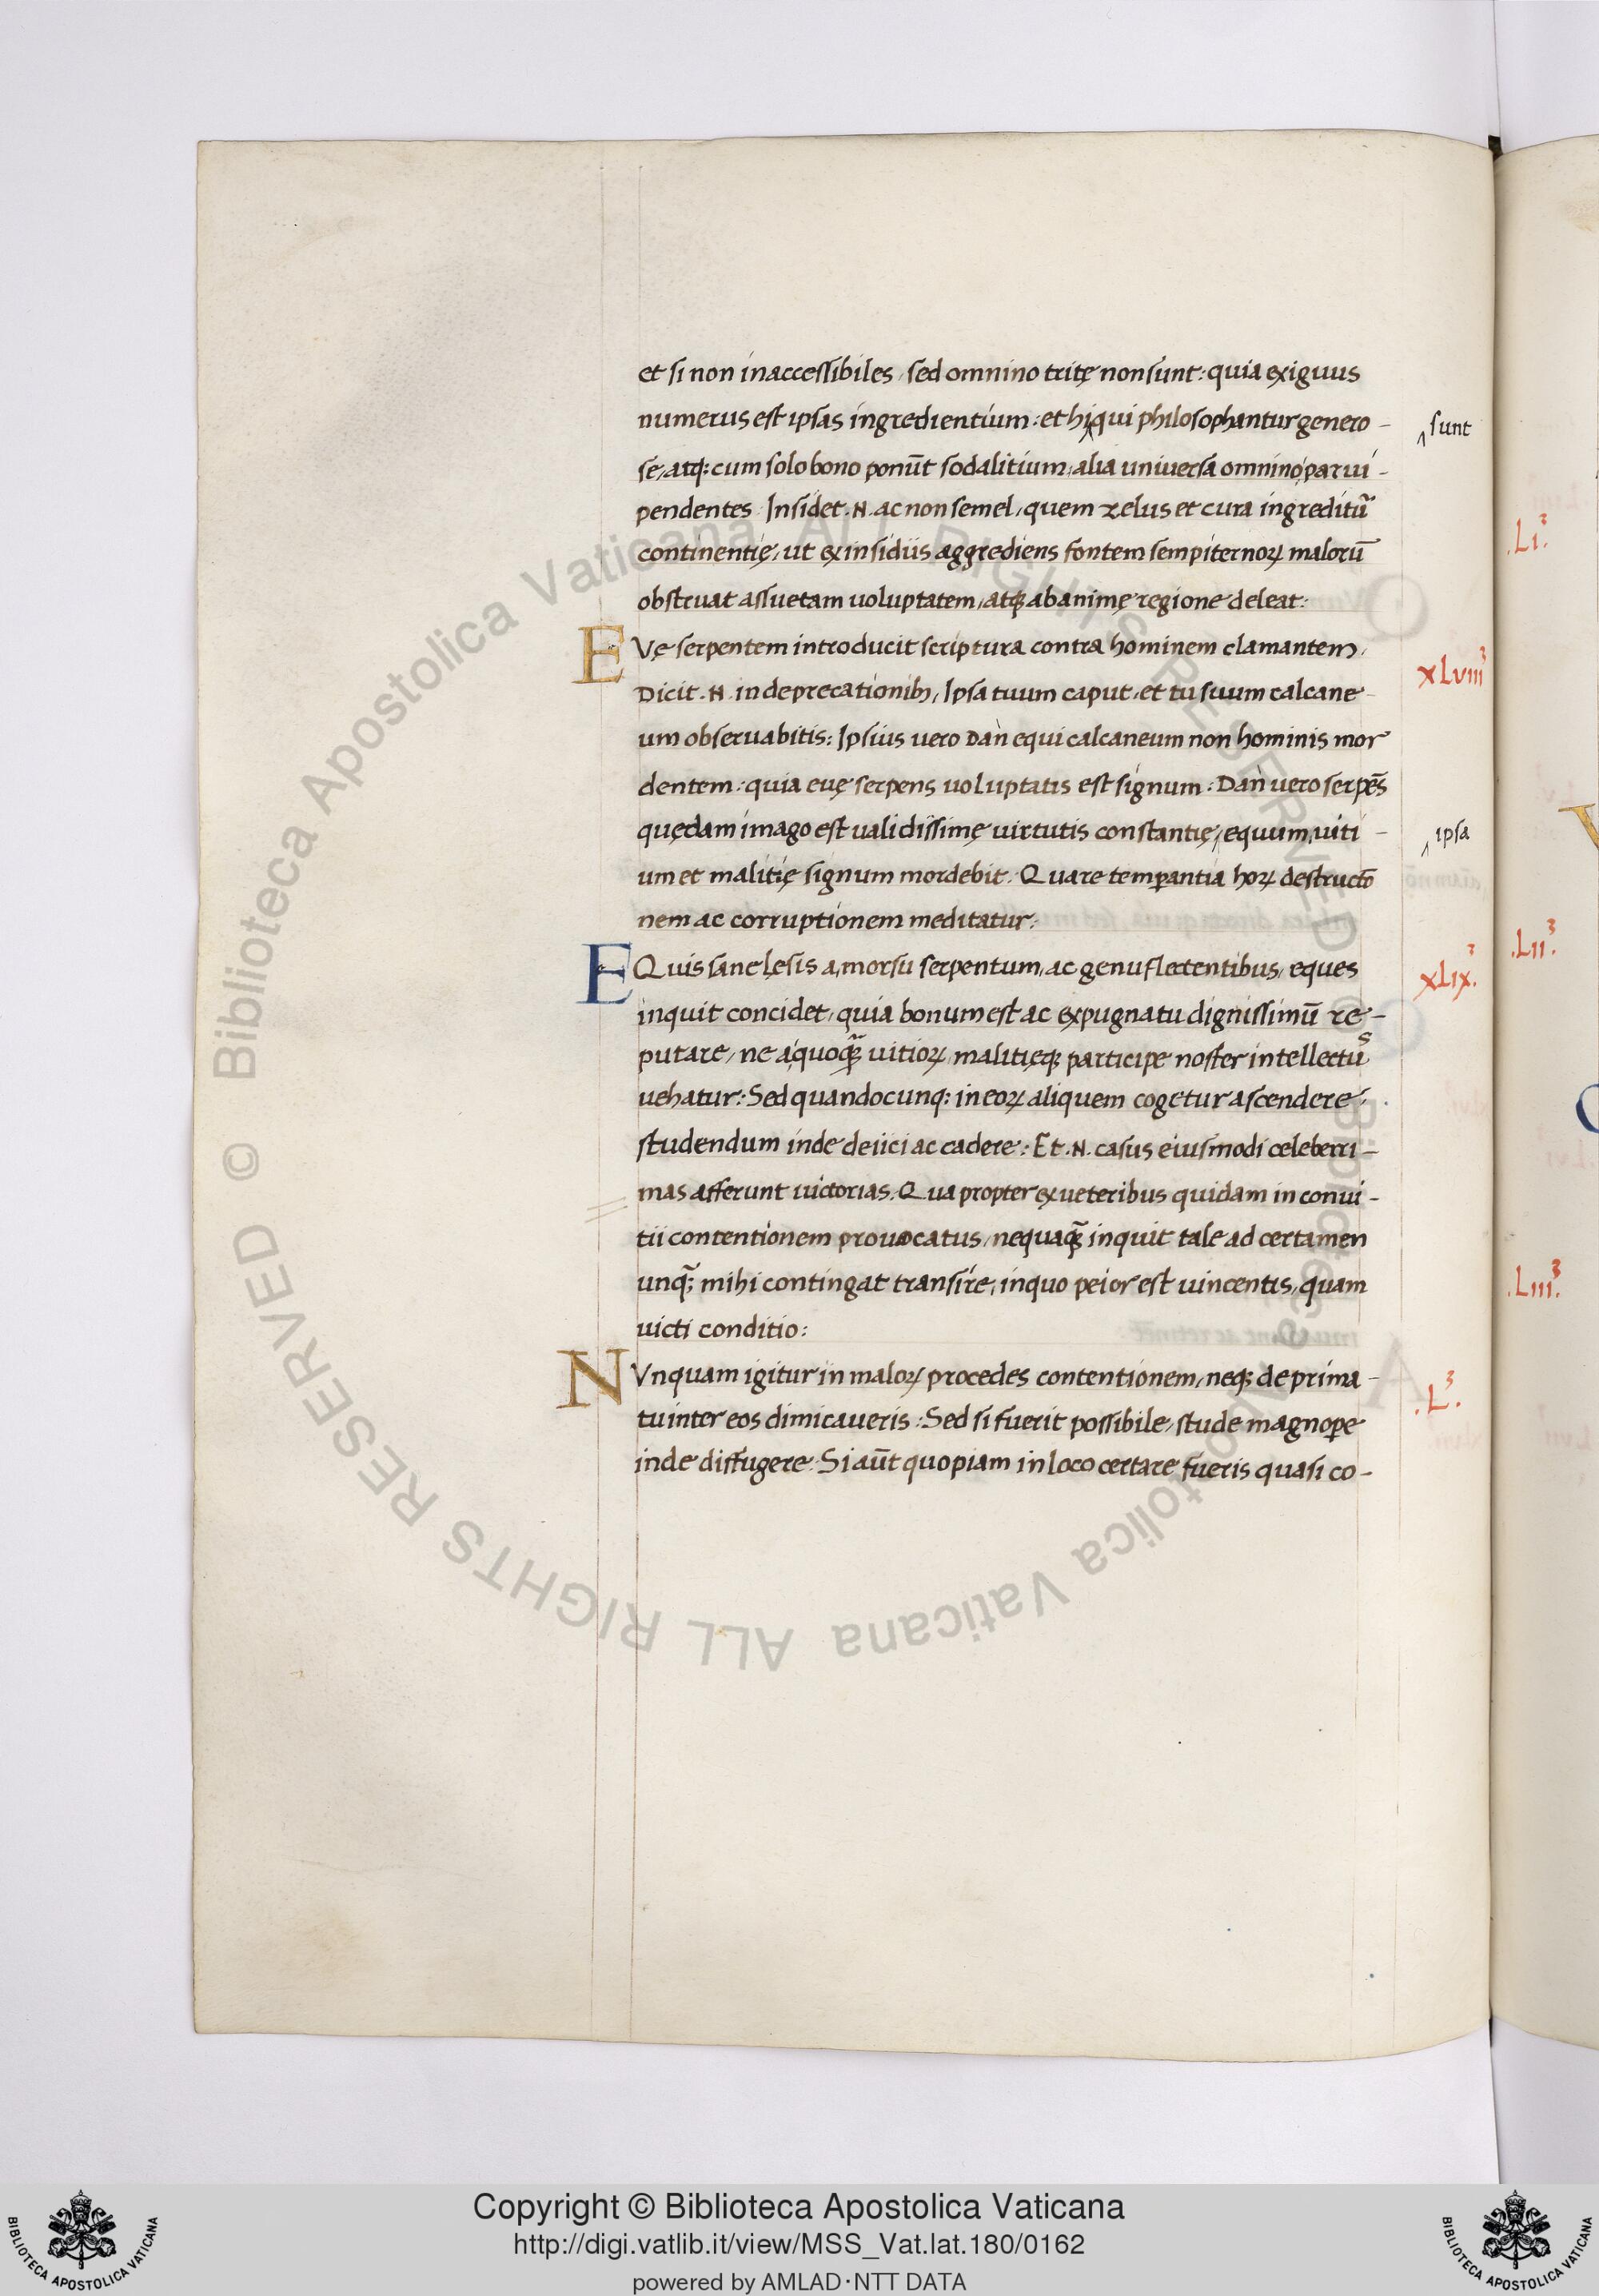 et si non inaccessibiles, sed omnino tritę non sunt: quia exiguus
numerus est ipsas ingredientium: et hi qui philosophantur genero-
^sunt
se, atq: cum solo bono ponūt sodalitium, alia universa omnino parui-
pendentes. Insidet .N. ac non semel, quem zelus et cura ingreditũ
continentię, ut ex insidiis aggrediens fontem sempiternoꝝ malorū
obstruat assuetam uoluptatem, atqꝫ ab animę regione deleat:
EVę serpentem introducit scriptura contra hominem clamantem,
xLviii³
Dicit .N. in deprecationibꝫ, Ipsa tuum caput, et tu suum calcane-
um obseruabitis: Ipsius vero Dan equi calcaneum non hominis mor
dentem: quia euę serpens uoluptatis est signum: Dan uero serpēs
quędam imago est ualidissimę uirtutis constantię, equum, uiti-
^ipsa
um et malitię signum mordebit. Quare temꝑantia hoꝝ destructō
nem ac corruptionem meditatur:
EQuis sane lęsis a, morsu serpentum, ac genuflectentibus, eques
xLix³.
inquit concidet, quia bonum est ac expugnatu dignissimū re-
putare, ne a, quoqꝫ̃ uitioꝝ, malitięqꝫ participe noster intellectus
uehatur: Sed quandocunq: in eoꝝ aliquem cogetur ascendere:
studendum inde deiici ac cadere: Et .N. casus eiusmodi celeberri-
mas afferunt uictorias. Qua propter ex ueteribus quidam in conui-
tii contentionem prouocatus, nequaqꝫ̃ inquit tale ad certamen
unq̃; mihi contingat transire, in quo peior est uincentis, quam
uicti conditio:
NVnquam igitur in maloꝝ procedes contentionem, neqꝫ de prima-
.L³.
tu inter eos dimicaueris: Sed si fuerit possibile, stude magnoꝑe
inde diffugere: Si aūt quopiam in loco certare fueris quasi co-
.Li³.
.Lii.³
.Liii³.
© Biblioteca Apostolica Vaticana ALL RIGHTS RESERVED © Biblioteca Apostolica Vaticana ALL RIGHTS RESERVED
Copyright © Biblioteca Apostolica Vaticana
http://digi.vatlib.it/view/MSS_Vat.lat.180/0162
powered by AMLAD·NTT DATA
BIBLIOTECA APOSTOLICA VATICANA
BIBLIOTECA APOSTOLICA VATICANA